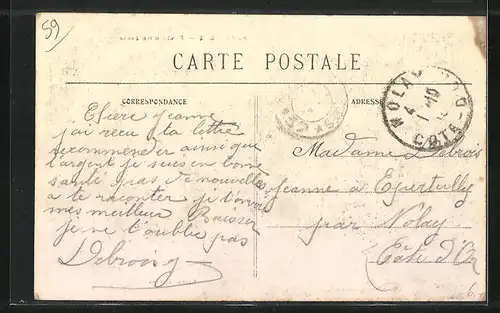 59
CARTE POSTALE
CORRESPONDANCE
ADRESSE
Chère Jeanne
j'ai reçu ta lettre
recommender ainsi que
l'argent je suis en bone
santé pas de nouvelles
a te raconter je t'envoi
mes meilleur Baisser
je ne t'oublie pas
Debrois
NOLAY
4 - 10
COTE-D'OR
Madame Debrois
Jeanne a Epertully
par Nolay
Côte d'Or